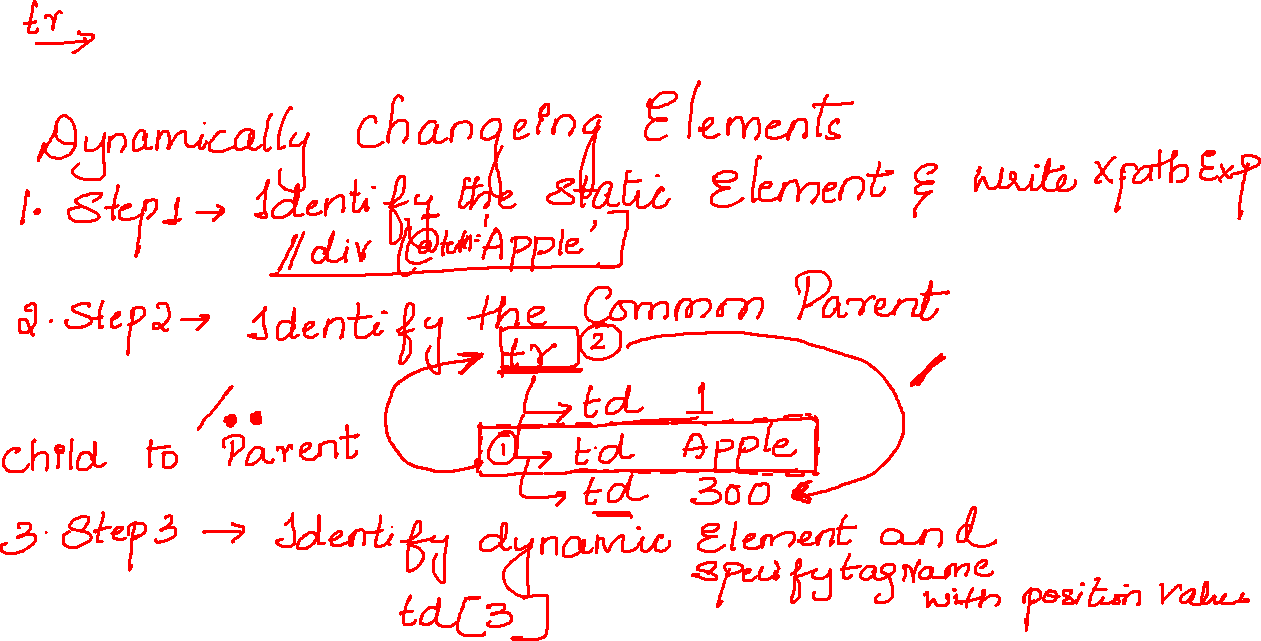 tr
Dynamically Changeing Elements
1. Step1 → Identify the static Element & write xpath Exp
//div [@text='Apple']
2. Step2 → Identify the Common Parent
tr 2
→ td 1
/..
Child to Parent
1 → td Apple
→ td 300
3. Step3 → Identify dynamic Element and
specify tagName
with position value
td[3]